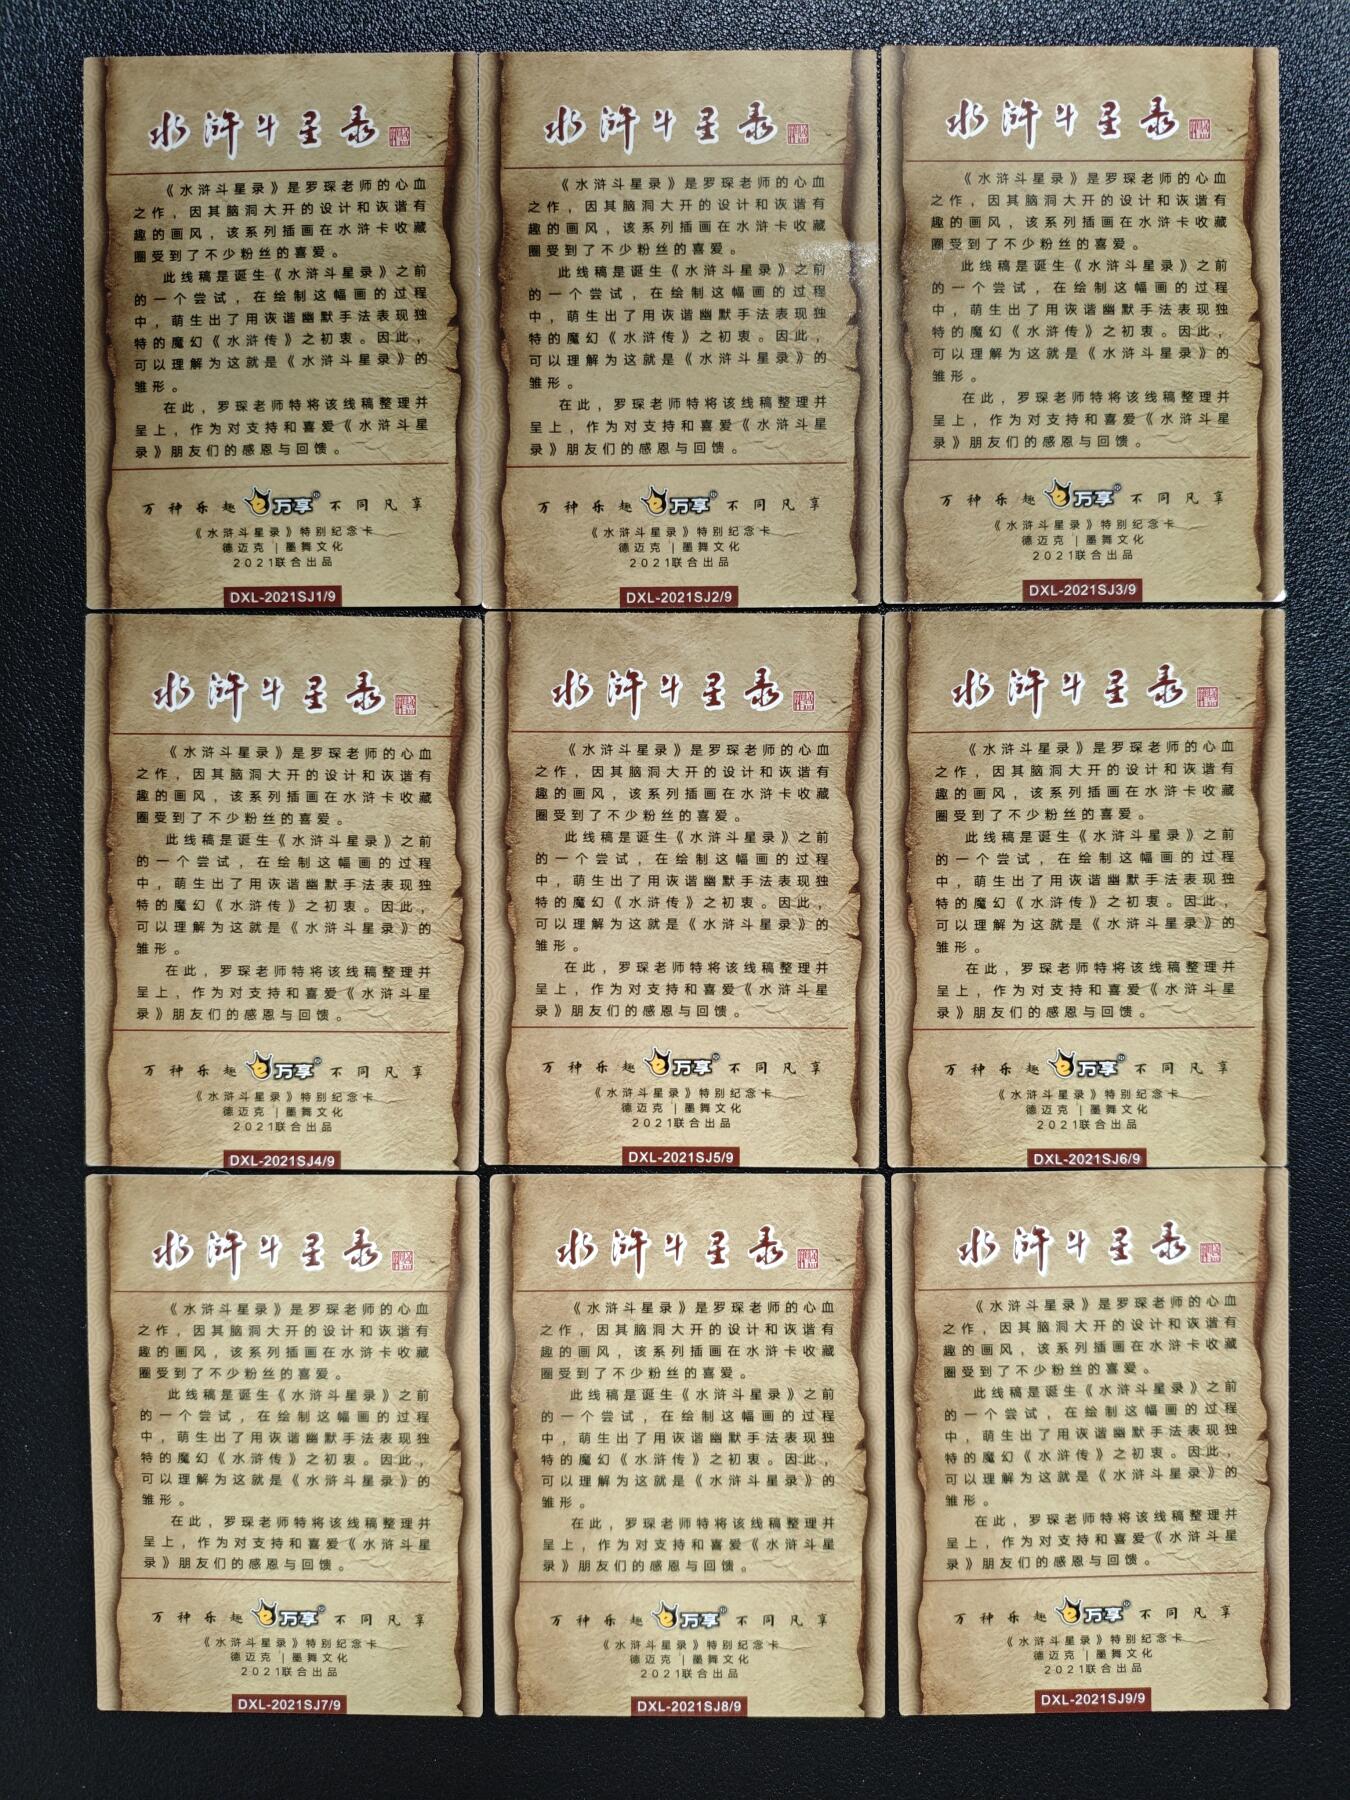 水浒斗星录
《水浒斗星录》是罗琛老师的心血
之作，因其脑洞大开的设计和诙谐有
趣的画风，该系列插画在水浒卡收藏
圈受到了不少粉丝的喜爱。
此线稿是诞生《水浒斗星录》之前
的一个尝试，在绘制这幅画的过程
中，萌生出了用诙谐幽默手法表现独
特的魔幻《水浒传》之初衷。因此，
可以理解为这就是《水浒斗星录》的
雏形。
在此，罗琛老师特将该线稿整理并
呈上，作为对支持和喜爱《水浒斗星
录》朋友们的感恩与回馈。
万种乐趣 e万享 不同凡享
《水浒斗星录》特别纪念卡
德迈克｜墨舞文化
2021联合出品
DXL-2021SJ1/9
水浒斗星录
《水浒斗星录》是罗琛老师的心血
之作，因其脑洞大开的设计和诙谐有
趣的画风，该系列插画在水浒卡收藏
圈受到了不少粉丝的喜爱。
此线稿是诞生《水浒斗星录》之前
的一个尝试，在绘制这幅画的过程
中，萌生出了用诙谐幽默手法表现独
特的魔幻《水浒传》之初衷。因此，
可以理解为这就是《水浒斗星录》的
雏形。
在此，罗琛老师特将该线稿整理并
呈上，作为对支持和喜爱《水浒斗星
录》朋友们的感恩与回馈。
万种乐趣 e万享 不同凡享
《水浒斗星录》特别纪念卡
德迈克｜墨舞文化
2021联合出品
DXL-2021SJ2/9
水浒斗星录
《水浒斗星录》是罗琛老师的心血
之作，因其脑洞大开的设计和诙谐有
趣的画风，该系列插画在水浒卡收藏
圈受到了不少粉丝的喜爱。
此线稿是诞生《水浒斗星录》之前
的一个尝试，在绘制这幅画的过程
中，萌生出了用诙谐幽默手法表现独
特的魔幻《水浒传》之初衷。因此，
可以理解为这就是《水浒斗星录》的
雏形。
在此，罗琛老师特将该线稿整理并
呈上，作为对支持和喜爱《水浒斗星
录》朋友们的感恩与回馈。
万种乐趣 e万享 不同凡享
《水浒斗星录》特别纪念卡
德迈克｜墨舞文化
2021联合出品
DXL-2021SJ3/9
水浒斗星录
《水浒斗星录》是罗琛老师的心血
之作，因其脑洞大开的设计和诙谐有
趣的画风，该系列插画在水浒卡收藏
圈受到了不少粉丝的喜爱。
此线稿是诞生《水浒斗星录》之前
的一个尝试，在绘制这幅画的过程
中，萌生出了用诙谐幽默手法表现独
特的魔幻《水浒传》之初衷。因此，
可以理解为这就是《水浒斗星录》的
雏形。
在此，罗琛老师特将该线稿整理并
呈上，作为对支持和喜爱《水浒斗星
录》朋友们的感恩与回馈。
万种乐趣 e万享 不同凡享
《水浒斗星录》特别纪念卡
德迈克｜墨舞文化
2021联合出品
DXL-2021SJ4/9
水浒斗星录
《水浒斗星录》是罗琛老师的心血
之作，因其脑洞大开的设计和诙谐有
趣的画风，该系列插画在水浒卡收藏
圈受到了不少粉丝的喜爱。
此线稿是诞生《水浒斗星录》之前
的一个尝试，在绘制这幅画的过程
中，萌生出了用诙谐幽默手法表现独
特的魔幻《水浒传》之初衷。因此，
可以理解为这就是《水浒斗星录》的
雏形。
在此，罗琛老师特将该线稿整理并
呈上，作为对支持和喜爱《水浒斗星
录》朋友们的感恩与回馈。
万种乐趣 e万享 不同凡享
《水浒斗星录》特别纪念卡
德迈克｜墨舞文化
2021联合出品
DXL-2021SJ5/9
水浒斗星录
《水浒斗星录》是罗琛老师的心血
之作，因其脑洞大开的设计和诙谐有
趣的画风，该系列插画在水浒卡收藏
圈受到了不少粉丝的喜爱。
此线稿是诞生《水浒斗星录》之前
的一个尝试，在绘制这幅画的过程
中，萌生出了用诙谐幽默手法表现独
特的魔幻《水浒传》之初衷。因此，
可以理解为这就是《水浒斗星录》的
雏形。
在此，罗琛老师特将该线稿整理并
呈上，作为对支持和喜爱《水浒斗星
录》朋友们的感恩与回馈。
万种乐趣 e万享 不同凡享
《水浒斗星录》特别纪念卡
德迈克｜墨舞文化
2021联合出品
DXL-2021SJ6/9
水浒斗星录
《水浒斗星录》是罗琛老师的心血
之作，因其脑洞大开的设计和诙谐有
趣的画风，该系列插画在水浒卡收藏
圈受到了不少粉丝的喜爱。
此线稿是诞生《水浒斗星录》之前
的一个尝试，在绘制这幅画的过程
中，萌生出了用诙谐幽默手法表现独
特的魔幻《水浒传》之初衷。因此，
可以理解为这就是《水浒斗星录》的
雏形。
在此，罗琛老师特将该线稿整理并
呈上，作为对支持和喜爱《水浒斗星
录》朋友们的感恩与回馈。
万种乐趣 e万享 不同凡享
《水浒斗星录》特别纪念卡
德迈克｜墨舞文化
2021联合出品
DXL-2021SJ7/9
水浒斗星录
《水浒斗星录》是罗琛老师的心血
之作，因其脑洞大开的设计和诙谐有
趣的画风，该系列插画在水浒卡收藏
圈受到了不少粉丝的喜爱。
此线稿是诞生《水浒斗星录》之前
的一个尝试，在绘制这幅画的过程
中，萌生出了用诙谐幽默手法表现独
特的魔幻《水浒传》之初衷。因此，
可以理解为这就是《水浒斗星录》的
雏形。
在此，罗琛老师特将该线稿整理并
呈上，作为对支持和喜爱《水浒斗星
录》朋友们的感恩与回馈。
万种乐趣 e万享 不同凡享
《水浒斗星录》特别纪念卡
德迈克｜墨舞文化
2021联合出品
DXL-2021SJ8/9
水浒斗星录
《水浒斗星录》是罗琛老师的心血
之作，因其脑洞大开的设计和诙谐有
趣的画风，该系列插画在水浒卡收藏
圈受到了不少粉丝的喜爱。
此线稿是诞生《水浒斗星录》之前
的一个尝试，在绘制这幅画的过程
中，萌生出了用诙谐幽默手法表现独
特的魔幻《水浒传》之初衷。因此，
可以理解为这就是《水浒斗星录》的
雏形。
在此，罗琛老师特将该线稿整理并
呈上，作为对支持和喜爱《水浒斗星
录》朋友们的感恩与回馈。
万种乐趣 e万享 不同凡享
《水浒斗星录》特别纪念卡
德迈克｜墨舞文化
2021联合出品
DXL-2021SJ9/9